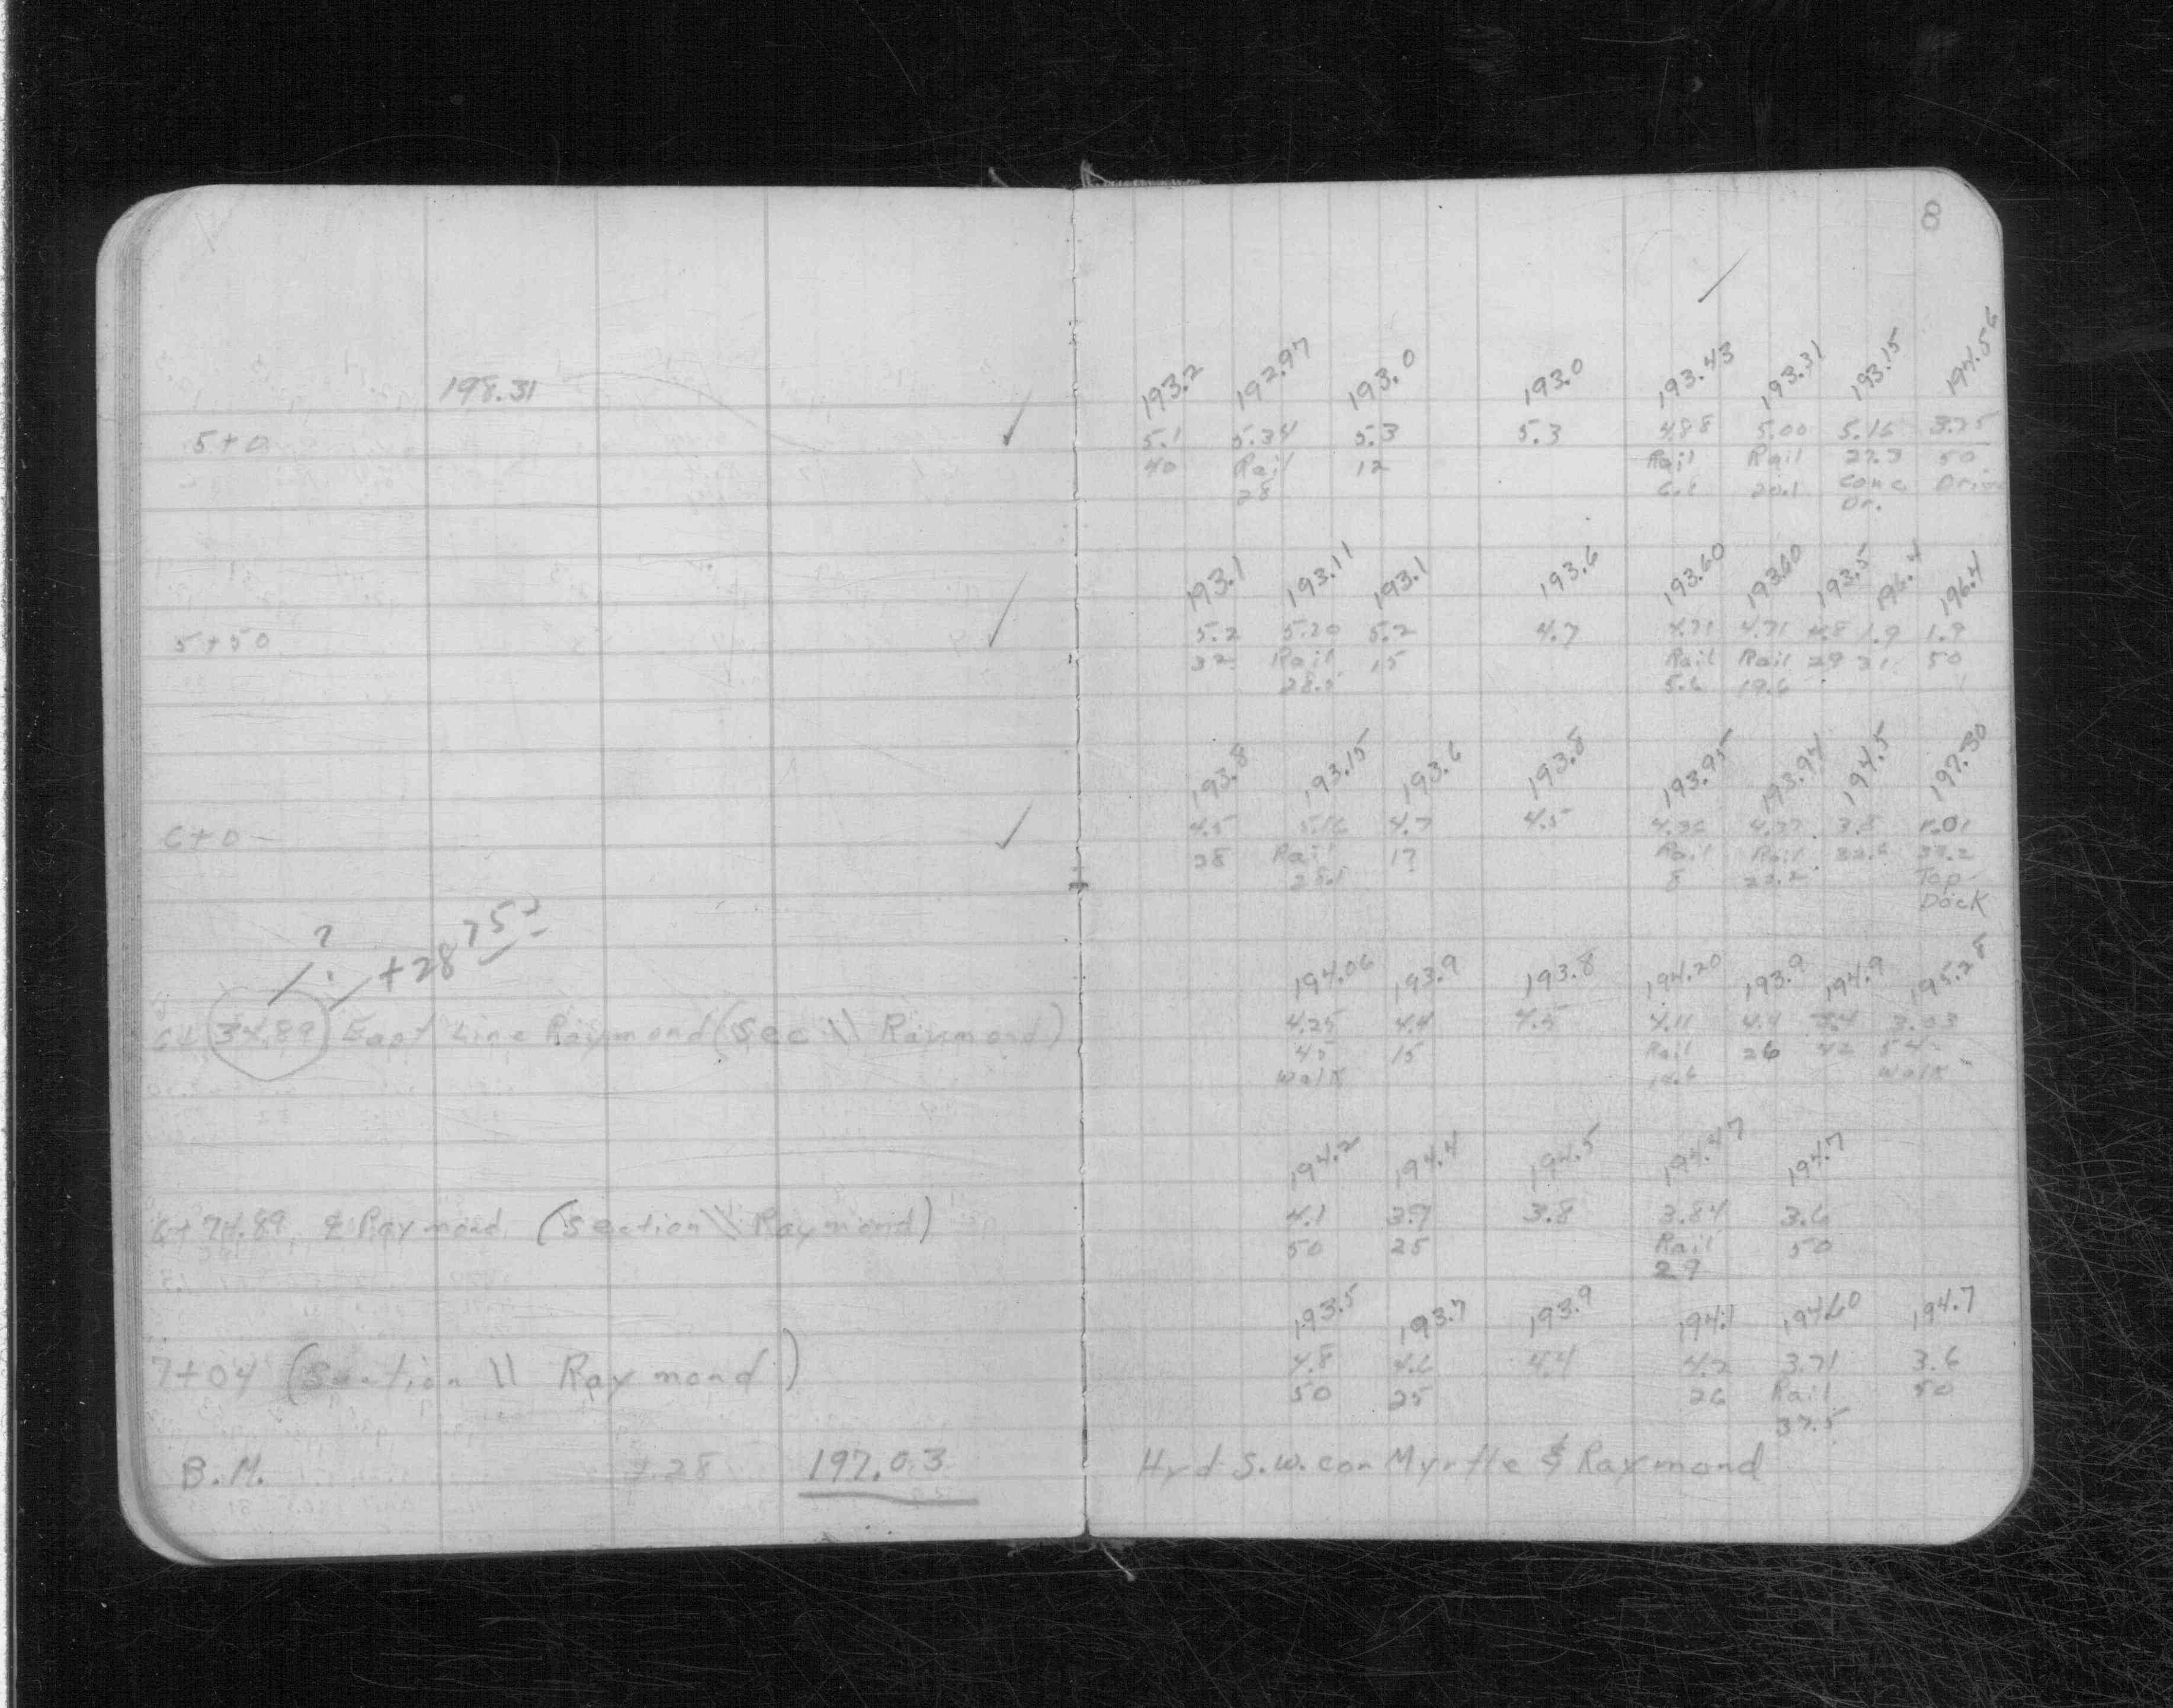 8
198.31
193.2 192.97 193.0 193.0 193.43 193.31 193.15 194.56
5+0 5.1 5.34 5.3 5.3 4.88 5.00 5.16 3.75
40 Rail 12 Rail Rail 27.3 50
28 20.1 Conc Drive
Dr.
193.1 193.11 193.1 193.6 193.60 193.60 193.5 196.4 196.4
5+50 5.2 5.20 5.2 4.7 4.71 4.71 4.8 1.9 1.9
32 Rail 15 Rail Rail 29 31 50
28.5 5.6 19.6
193.8 193.15 193.6 193.8 193.95 193.94 194.5 197.30
6+0 4.5 5.16 4.7 4.5 4.36 4.37 3.8 1.01
38 Rail 17 Rail Rail 32.6 37.2
28.1 8 22.2 Top
Dock
? +28 75 ?
194.06 193.9 193.8 194.20 193.9 194.9 195.28
6+ 34.89 East Line Raymond (Sec \\ Raymond) 4.25 4.4 4.5 4.11 4.4 3.4 3.03
45 15 Rail 26 42 54
Walk Walk
194.2 194.4 194.5 194.47 194.7
6+74.89 ℄ Raymond (Section \\ Raymond) 4.1 3.9 3.8 3.84 3.6
50 25 Rail 50
29
193.5 193.7 193.9 194.1 194.60 194.7
7+04 (Section \\ Raymond) 4.8 4.6 4.4 4.2 3.71 3.6
50 25 26 Rail 50
37.5
B.M. 1.28 197.03 Hyd S.W. cor Myrtle & Raymond